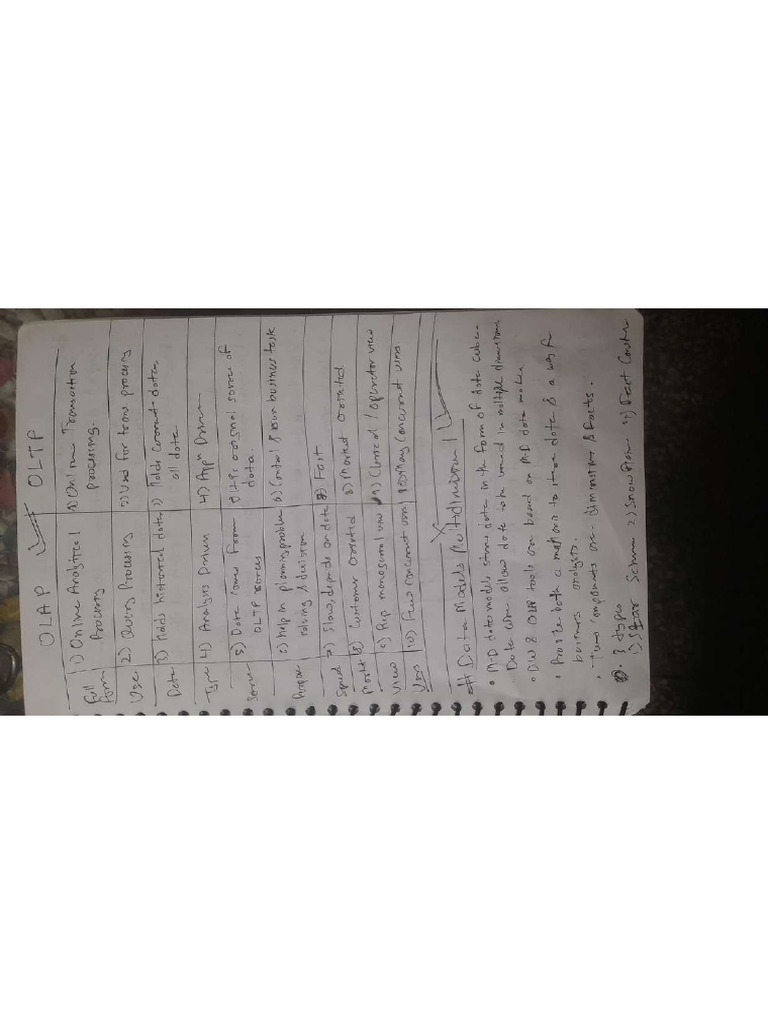 OLAP OLTP
Full Form 1) Online Analytical Processing 1) Online Transaction processing.
Use 2) Query Processing 2) Used for trans. procing
Data 3) Holds historical data 3) Holds current data
all data
Type 4) Analysis Driven 4) Appn Driven
Source 5) Data comes from OLTP sources 5) original source of data
Purpose 6) help in planning, problem solving & decision 6) Control & run business task
Speed 7) Slow, depends on data 7) Fast
8) Customer oriented 8) Market oriented.
View 9) manegional view 9) Clerical / operator view
Users 10) Few concurrent users 10) Many concurrent users
# Data Models Multidimension
• M-D data models store data in the form of data cube.
Data allow data to be viewed in multiple dimensions
• DW & OLAP tools are based on M-D data model
• Provide both a mechanis to store data & a way for
business analysis.
• Two components are - dimensions & facts.
3 types
1) Star Schema 2) Snowflow 3) Fact Conste